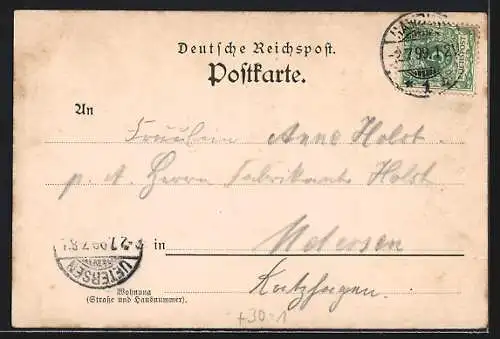 Deutsche Reichspost.
Postkarte.
2.7.99.
1
An
Fräulein Anne Holst
p. A. Herrn Fabrikants Holst
in Uetersen
UETERSEN
2.7.99.7-8
Wohnung
(Straße und Hausnummer).
+30-1